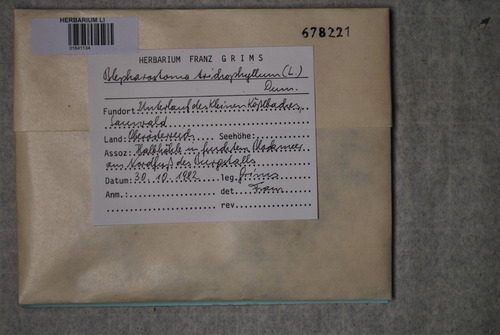 HERBARIUM LI
01641134
678221
HERBARIUM FRANZ GRIMS
Blepharostoma trichophyllum (L.)
Dum.
Fundort: Unterlauf des Kleinen Kößlbaches,
Sauwald
Land: Oberösterreich Seehöhe:
Assoz: Halbhöhle in feuchtem
am Nordfuß des
Datum: 30.10.1982 leg. Grims
Anm.: det.
rev.